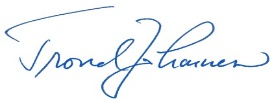 Trond Johannesen